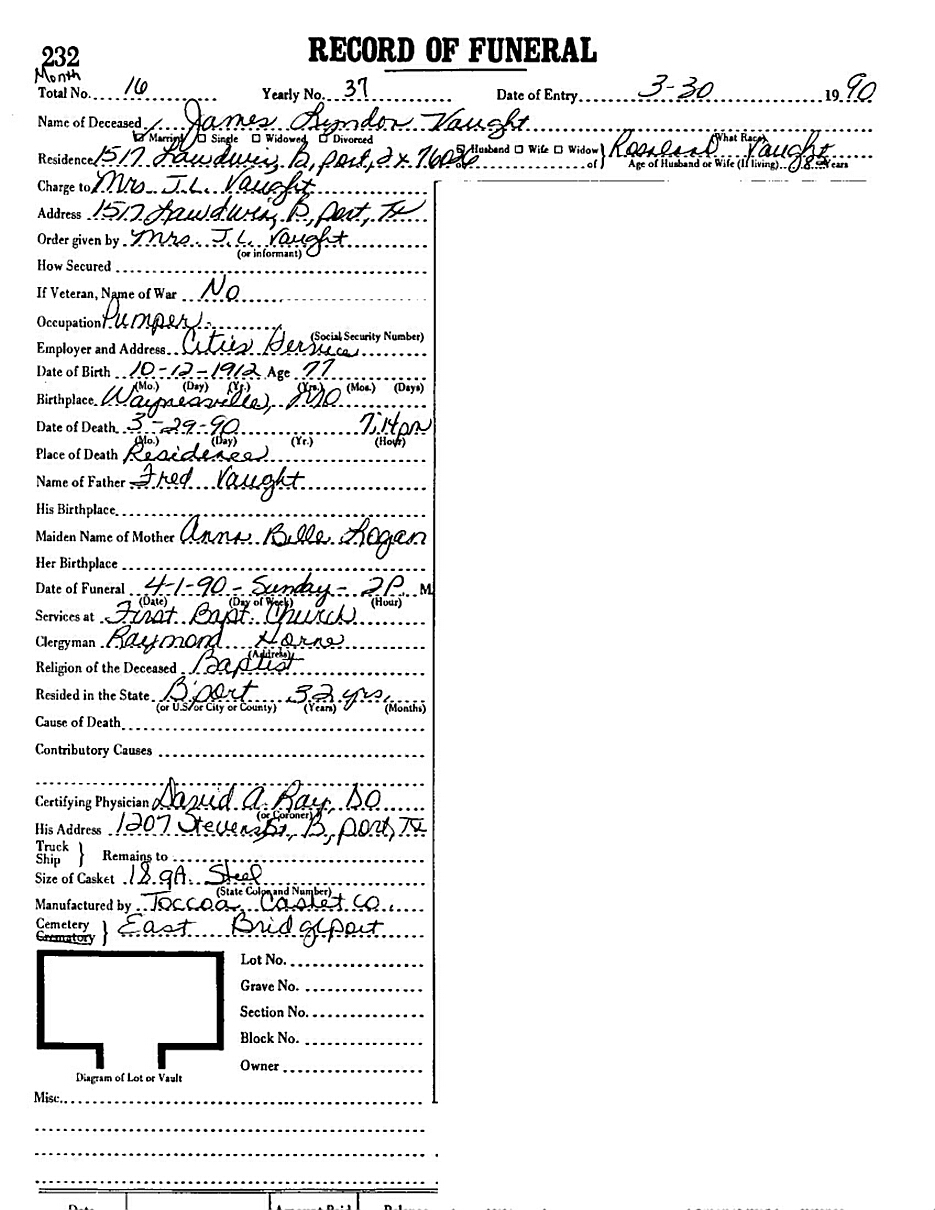 232
RECORD OF FUNERAL
Month
Total No. 16 Yearly No. 37 Date of Entry 3-30 19 90
Name of Deceased James Lyndon Vaught
Married Single Widowed Divorced (What Race)
Residence 1517 B, port, Tx 76026 Husband Wife Widow of Vaught
Age of Husband or Wife (If living) Years
Charge to Mrs J.L. Vaught
Address 1517 B, port, Tx
Order given by Mrs. J.L. Vaught
(or informant)
How Secured
If Veteran, Name of War No
Occupation Pumper
(Social Security Number)
Employer and Address Cities Service
Date of Birth 10-12-1912 Age 77
(Mo.) (Day) (Yr.) (Yrs.) (Mos.) (Days)
Birthplace Waynesville, MO
Date of Death 3-29-90 7:14pm
(Mo.) (Day) (Yr.) (Hour)
Place of Death Residence
Name of Father Fred Vaught
His Birthplace
Maiden Name of Mother Anna Belle Logan
Her Birthplace
Date of Funeral 4-1-90 - Sunday - 2P. M
(Date) (Day of Week) (Hour)
Services at First Bapt. Church
Clergyman Raymond Horne
(Address)
Religion of the Deceased Baptist
Resided in the State B'port 32 yrs.
(or U.S. or City or County) (Years) (Months)
Cause of Death
Contributory Causes
Certifying Physician David A. Ray, DO
(or Coroner)
His Address 1207 Stevens St., B, port, Tx
Truck
Ship } Remains to
Size of Casket 18 gA. Steel
(State Color and Number)
Manufactured by Toccoa Casket Co.
Cemetery
Crematory } East Bridgeport
Lot No.
Grave No.
Section No.
Block No.
Owner
Diagram of Lot or Vault
Misc.
Date Amount Paid Balance